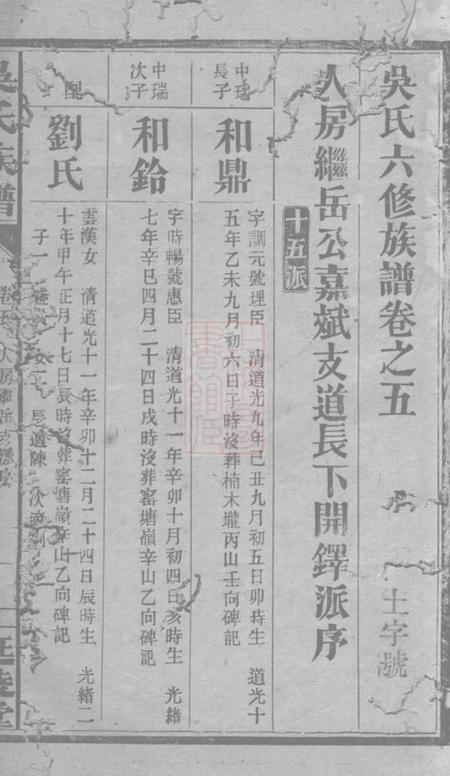 吳氏六修族譜卷之五
土字號
人房繼岳公嘉斌支道長下開鐸派序
十五派
中瑞長子
和鼎
字調元號埋臣 清道光九年己丑九月初五日卯時生 道光十
五年乙未九月初六日子時沒葬楠木壠丙山壬向碑記
中瑞次子
和鉿
字時暢號惠臣 清道光十一年辛卯十月初四日亥時生 光緒
七年辛巳四月二十四日戌時沒葬窰塘嶺辛山乙向碑記
配
劉氏
雲漢女 清道光十一年辛卯十二月二十四日辰時生 光緒二
十年甲午正月十七日辰時沒葬窰塘嶺辛山乙向碑記
子一 女二 長適陳 次適劉
吳氏族譜
卷五 人房繼岳
延陵堂